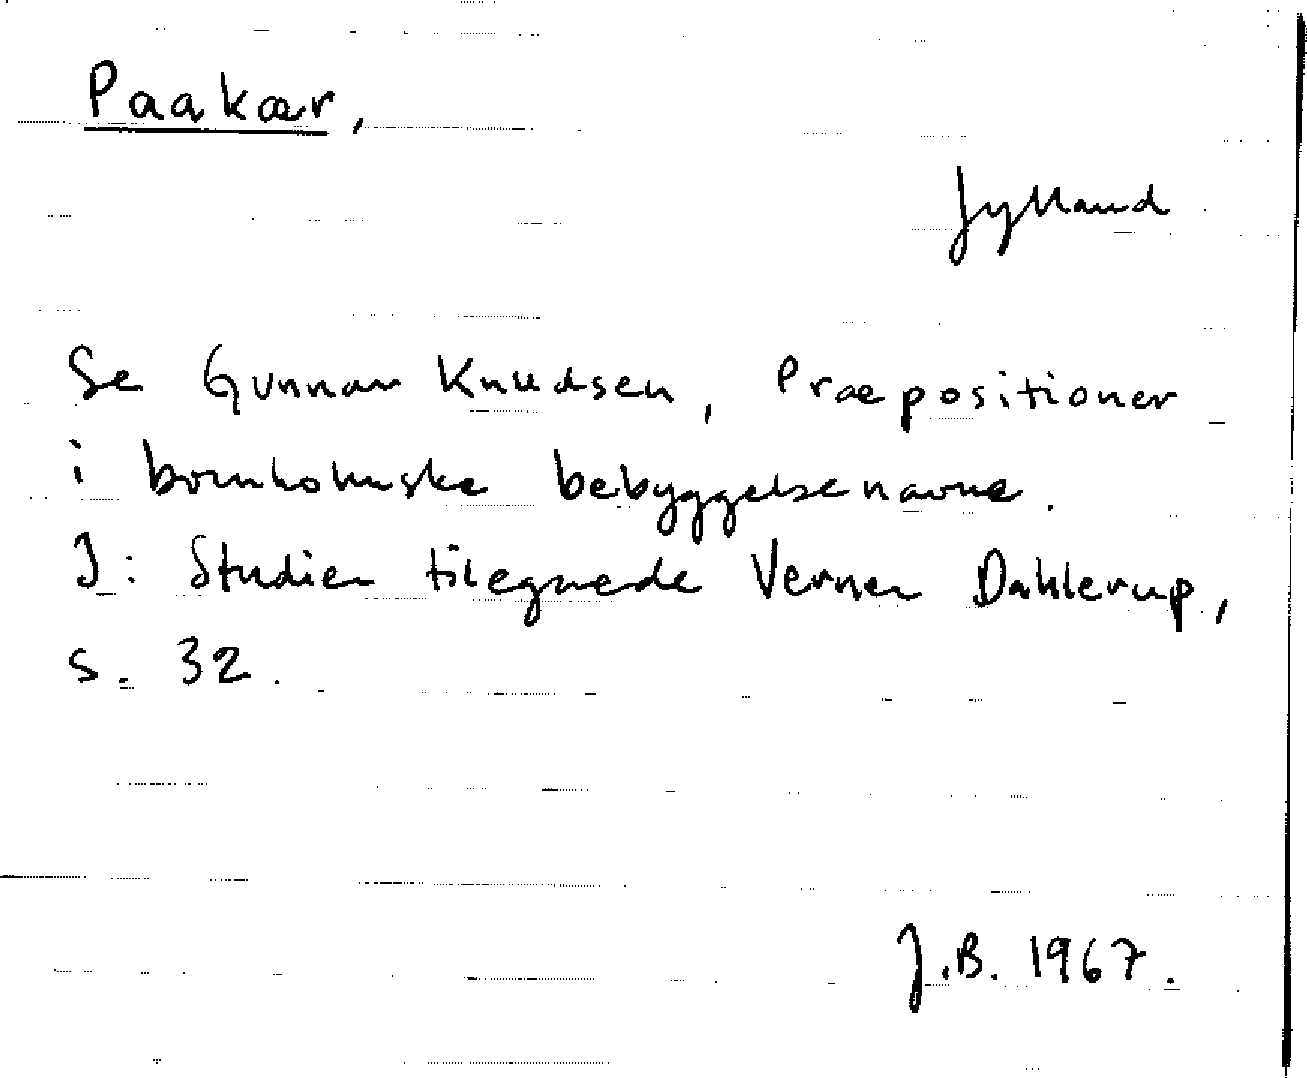 Paakær,
Jylland
Se Gunnar Knudsen, Præpositioner
i bornholmske bebyggelsenavne.
I: Studier tilegnede Verner Dahlerup,
s. 32.
J.B. 1967.